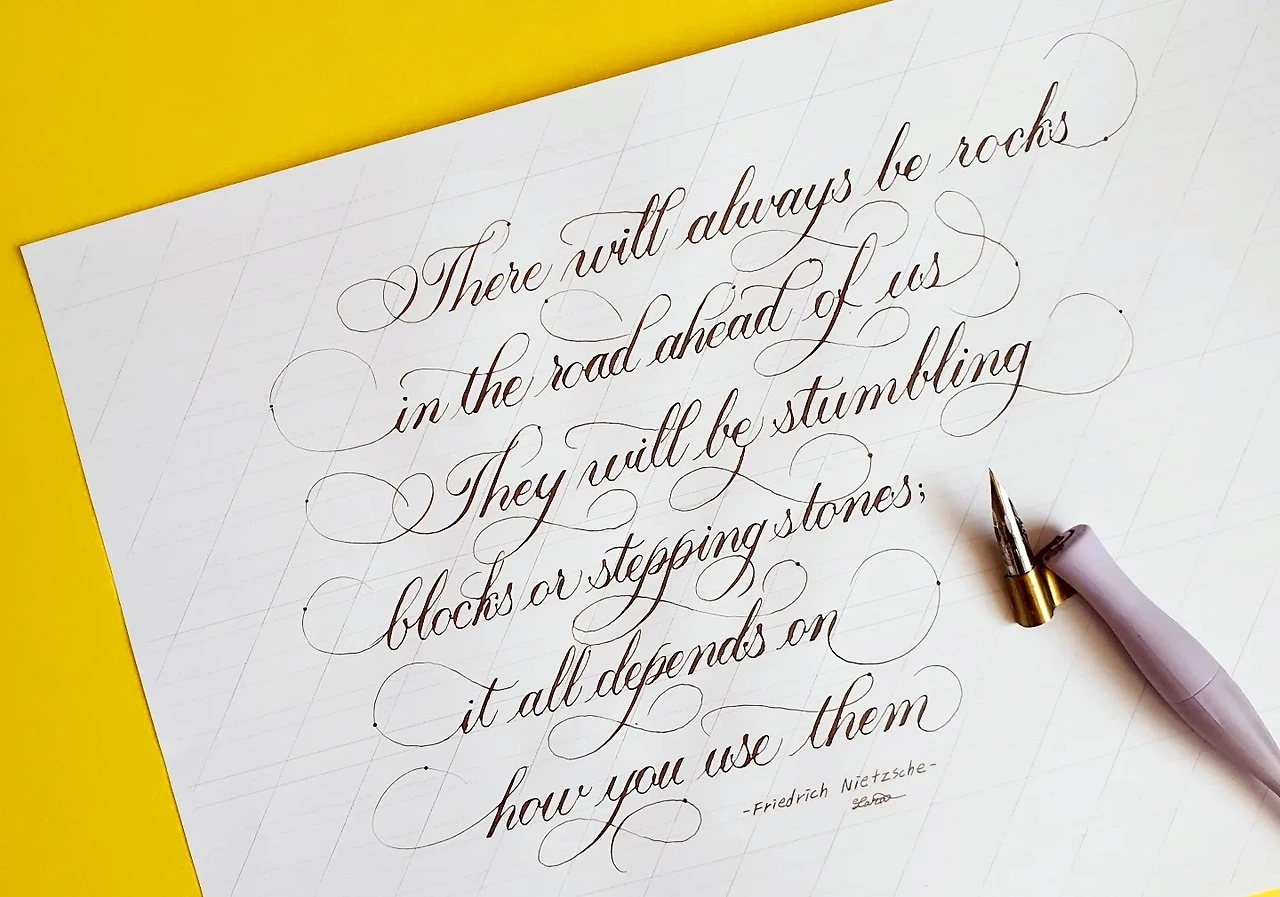 There will always be rocks
in the road ahead of us
They will be stumbling
blocks or stepping stones;
it all depends on
how you use them
-Friedrich Nietzsche-